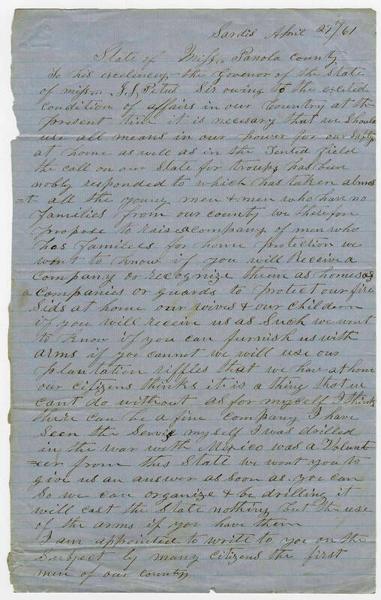 Sardis April 27/61
State of Miss, Panola County
To his excelency the Govenor of the State
of miss J. J. Petus Sir owing to the excited
condition of affairs in our Country at the
present time it is necesary that we should
use all means in our power for our safty
at home as well as in the Tented field
the call on our State for troups has been
nobly responded to which has taken almos
t all the young men & men who have no
Families from our county we therefore
propose to raise a company of men who
has families for home protection we
want to know if you will receive a
company or recognize them as homes as
a companies or guards to protect our fire
sids at home our wives & our children
if you will receive us as such we want
to know if you can furnish us with
arms if you cannot we will use our
plantation riffles that we have at home
our citizens thinks it is a thing that we
cant do without as for myself I think
there can be a fine company I have
seen the service myself I was drilled
in the war with Mexico was a Volunt
eer from this State we want you to
give us an answer as soon as you can
so we can organize & be drilling it
will cost the State nothing but the use
of the arms if you have them
I am appointed to write to you on the
subject by many citizens the first
men of our county